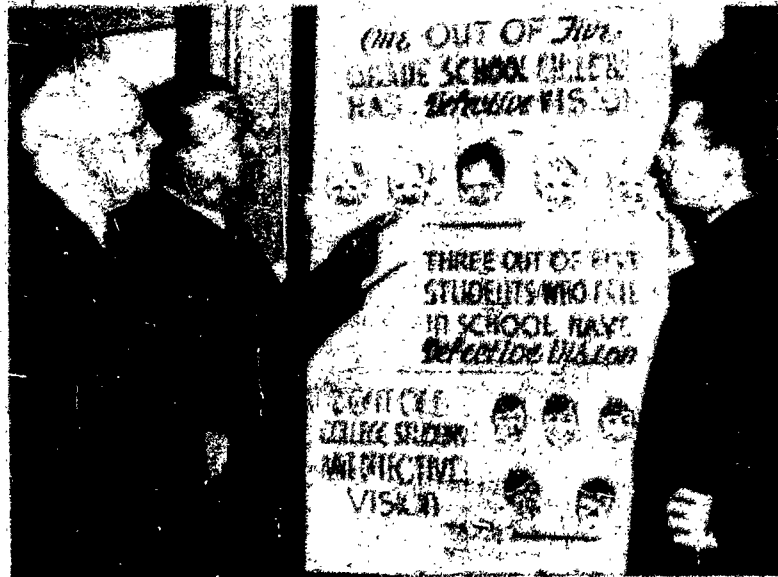 One OUT OF Five
GRADE SCHOOL CHILDREN
HAS Defective VISION
THREE OUT OF FIVE
STUDENTS WHO FAIL
IN SCHOOL HAVE
Defective Vision
COLLEGE STUDENTS
DEFECTIVE
VISION